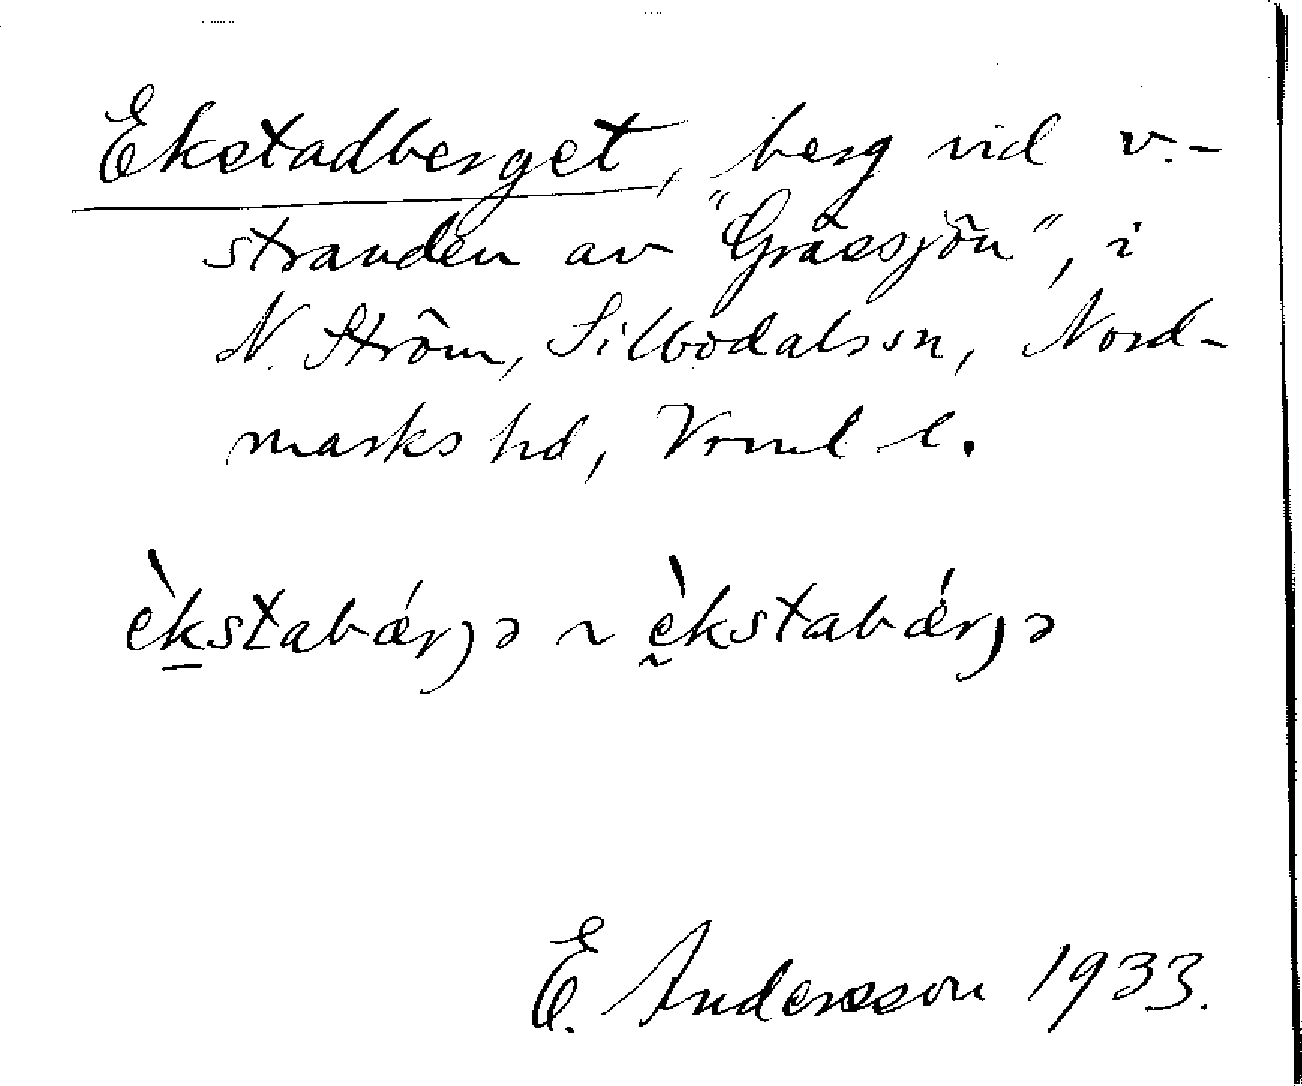 Ekstadberget, berg vid v.-
stranden av "Grässjön", i
N. Ström, Silbodals sn, Nord-
marks hd, Vrml l.
èk̲stabǽrjə ~ ḛ̀kstabǽrjə
E. Andersson 1933.